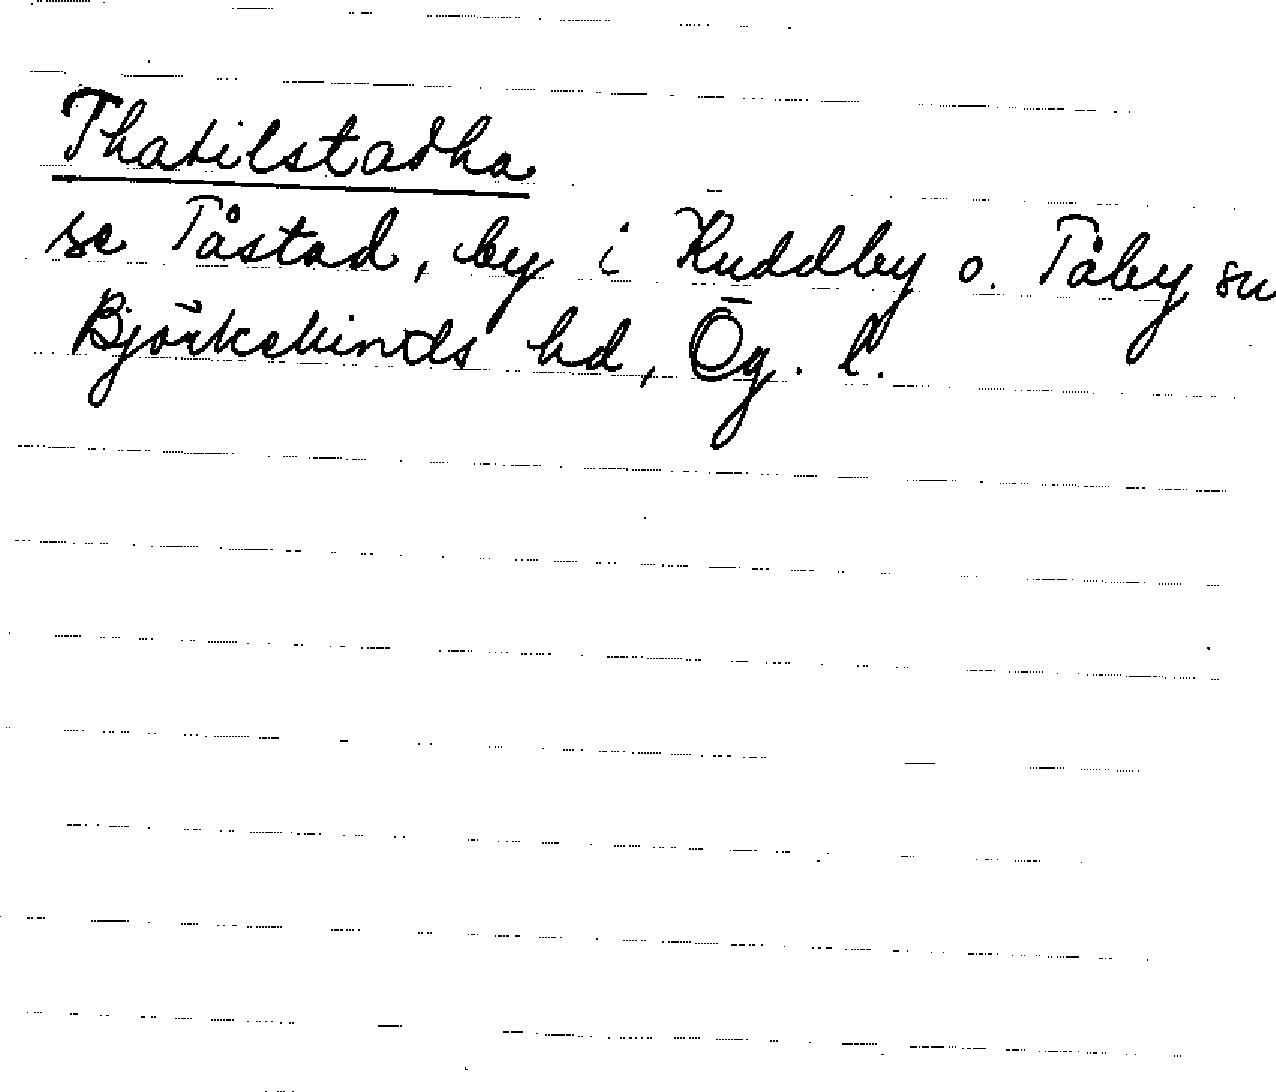 Thatilstadha
se Tåstad, by i Kuddby o. Tåby sn
Björkekinds hd, Ög. l.